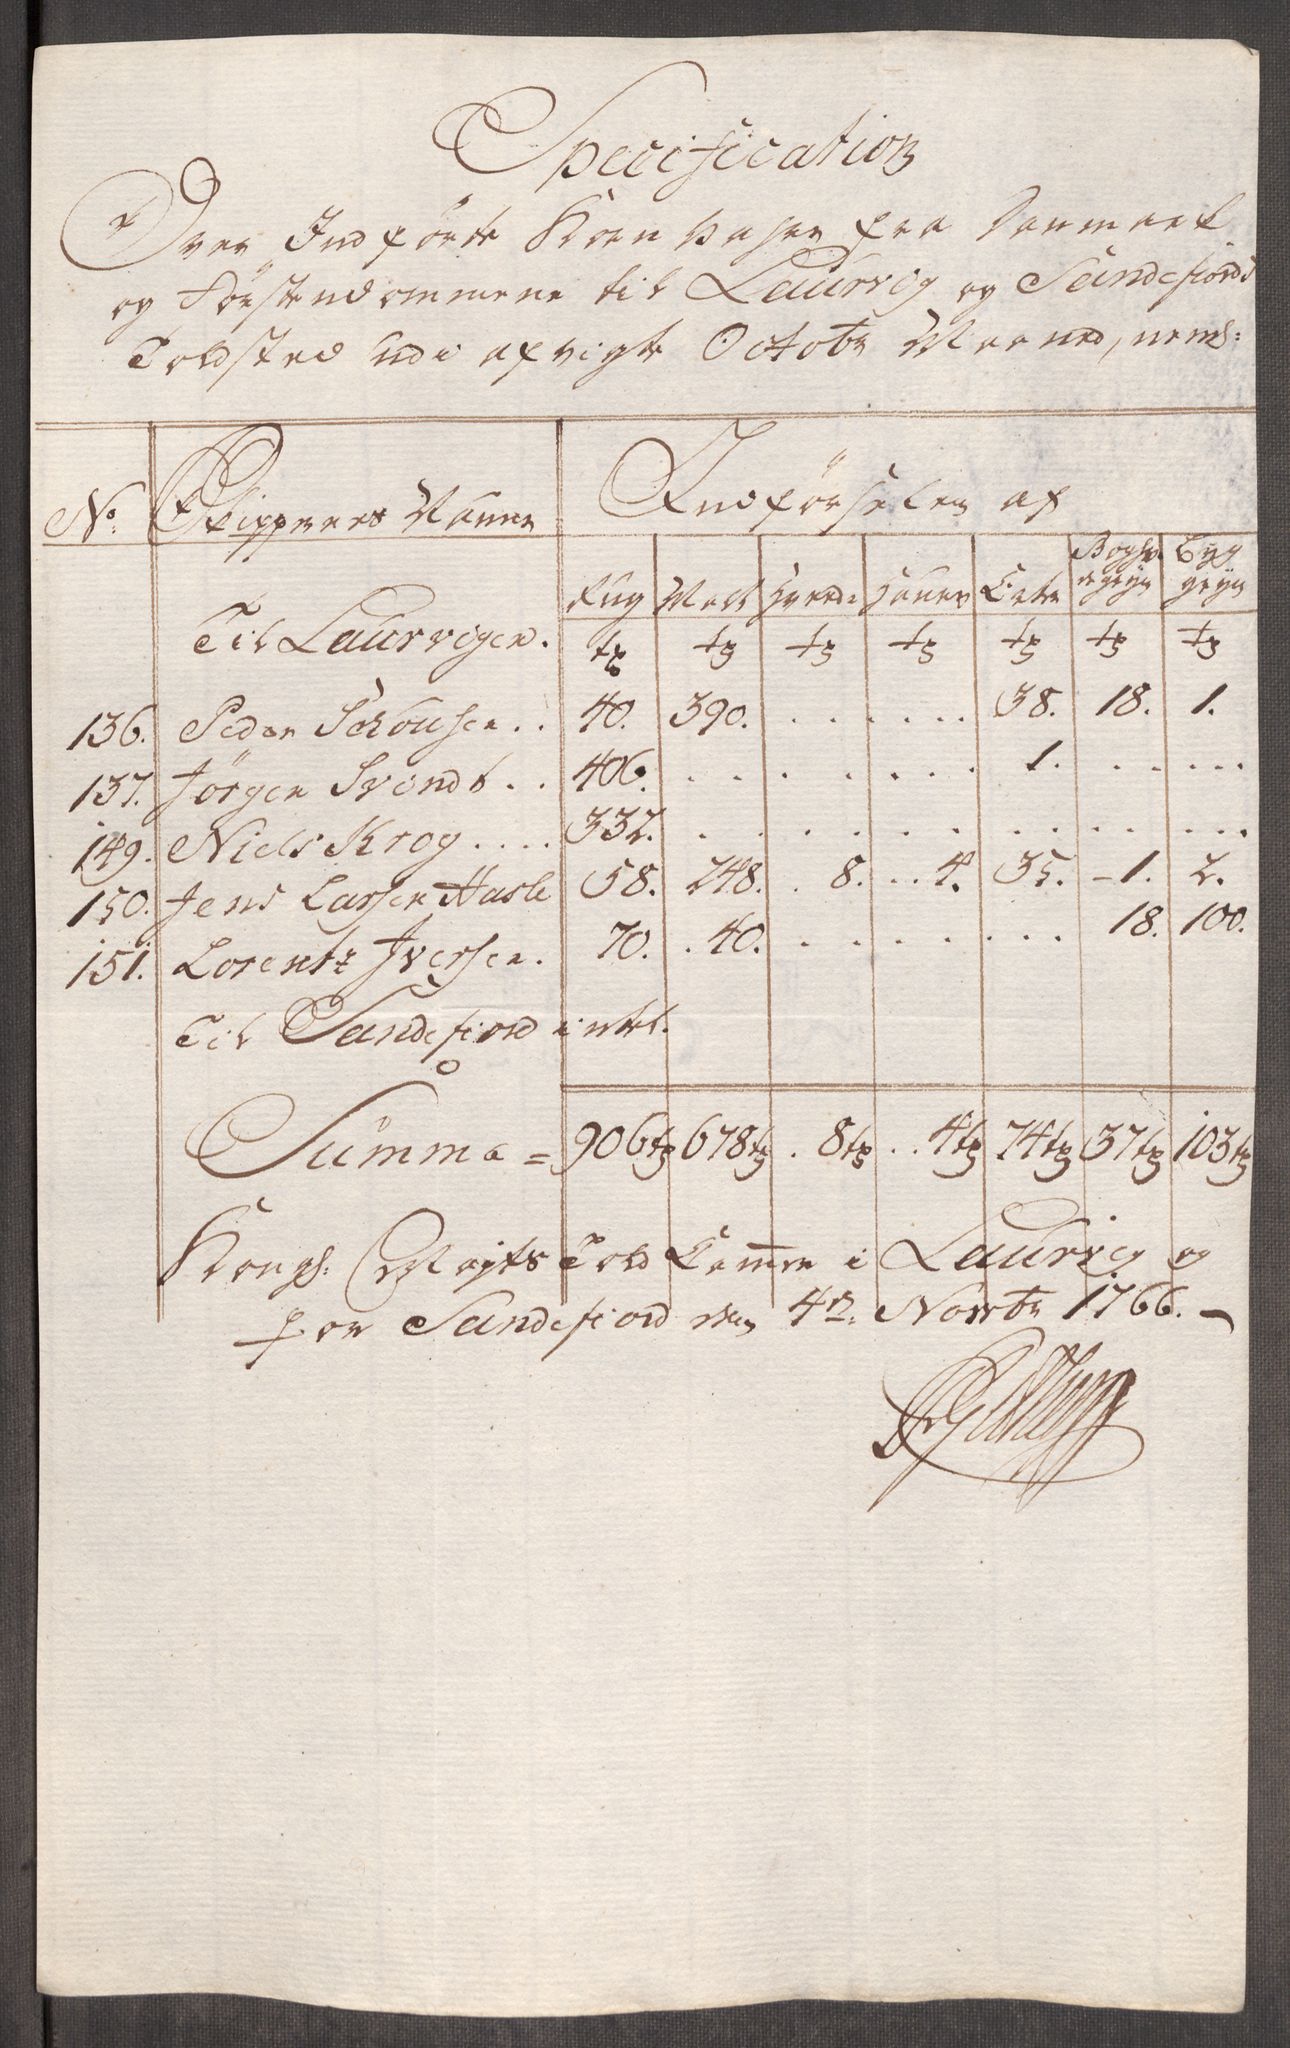 Specification
Over Indførte Korn Vahrer fra Danmark
og Førstendommene til Laurvig og Sandefiords
Toldsted udi afvigte Octobr Maaned, neml:
No: Skippernes Naune Indførselen af
Rug Malt Hvede Haver Erter Boghvedegryn Byggryn
Til Laurvigen. tr tr tr tr tr tr tr
136. Peder Schousen.. 40. 390. ...... 38. 18. 1.
137. Jørgen Svendt.. 406. ........ 1. ......
149. Niels Krog.... 332. ............
150. Jens Larsen Hasle 58. 248. . 8. .. 4. 35. - 1. 2.
151. Lorentz Iversen. 70. . 40. ........ 18. 100.
Til Sandefiord intet.
Summa = 906tr 678tr . 8tr .. 4tr 74tr 37tr 103tr
Kongl: Mayts Told Cammer i Laurvig og
for Sandefiord den 4de: Novbr 1766.